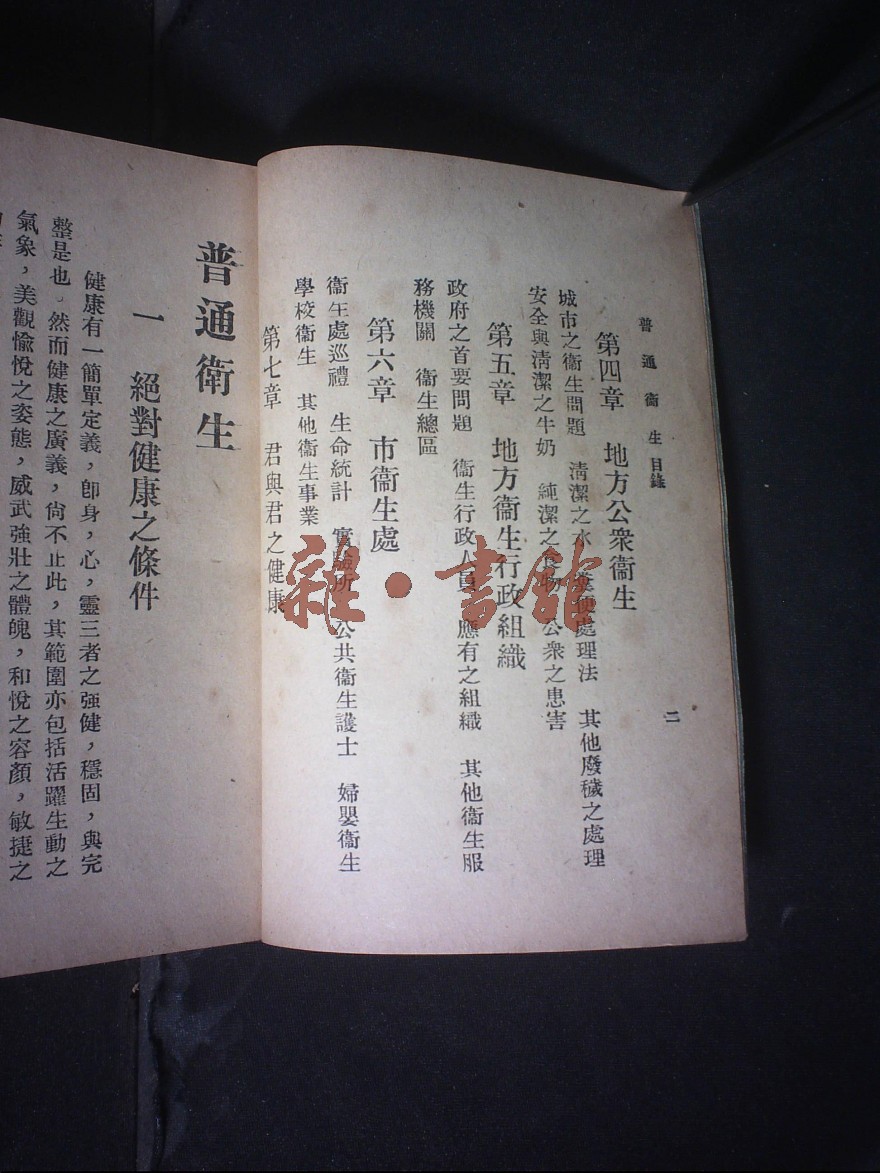 普通衞生 目錄
二
第四章 地方公衆衞生
城市之衞生問題 淸潔之水 糞便處理法 其他廢穢之處理
安全與淸潔之牛奶 純潔之食物 公衆之患害
第五章 地方衞生行政組織
政府之首要問題 衞生行政人員 應有之組織 其他衞生服
務機關 衞生總區
第六章 市衞生處
衞生處巡禮 生命統計 實驗所 公共衞生護士 婦嬰衞生
學校衞生 其他衞生事業
第七章 君與君之健康
普通衞生
一 絕對健康之條件
健康有一簡單定義，卽身，心，靈三者之强健，穩固，與完
整是也。然而健康之廣義，尙不止此，其範圍亦包括活躍生動之
氣象，美觀愉悅之姿態，威武強壯之體魄，和悅之容顏，敏捷之
雜·書館